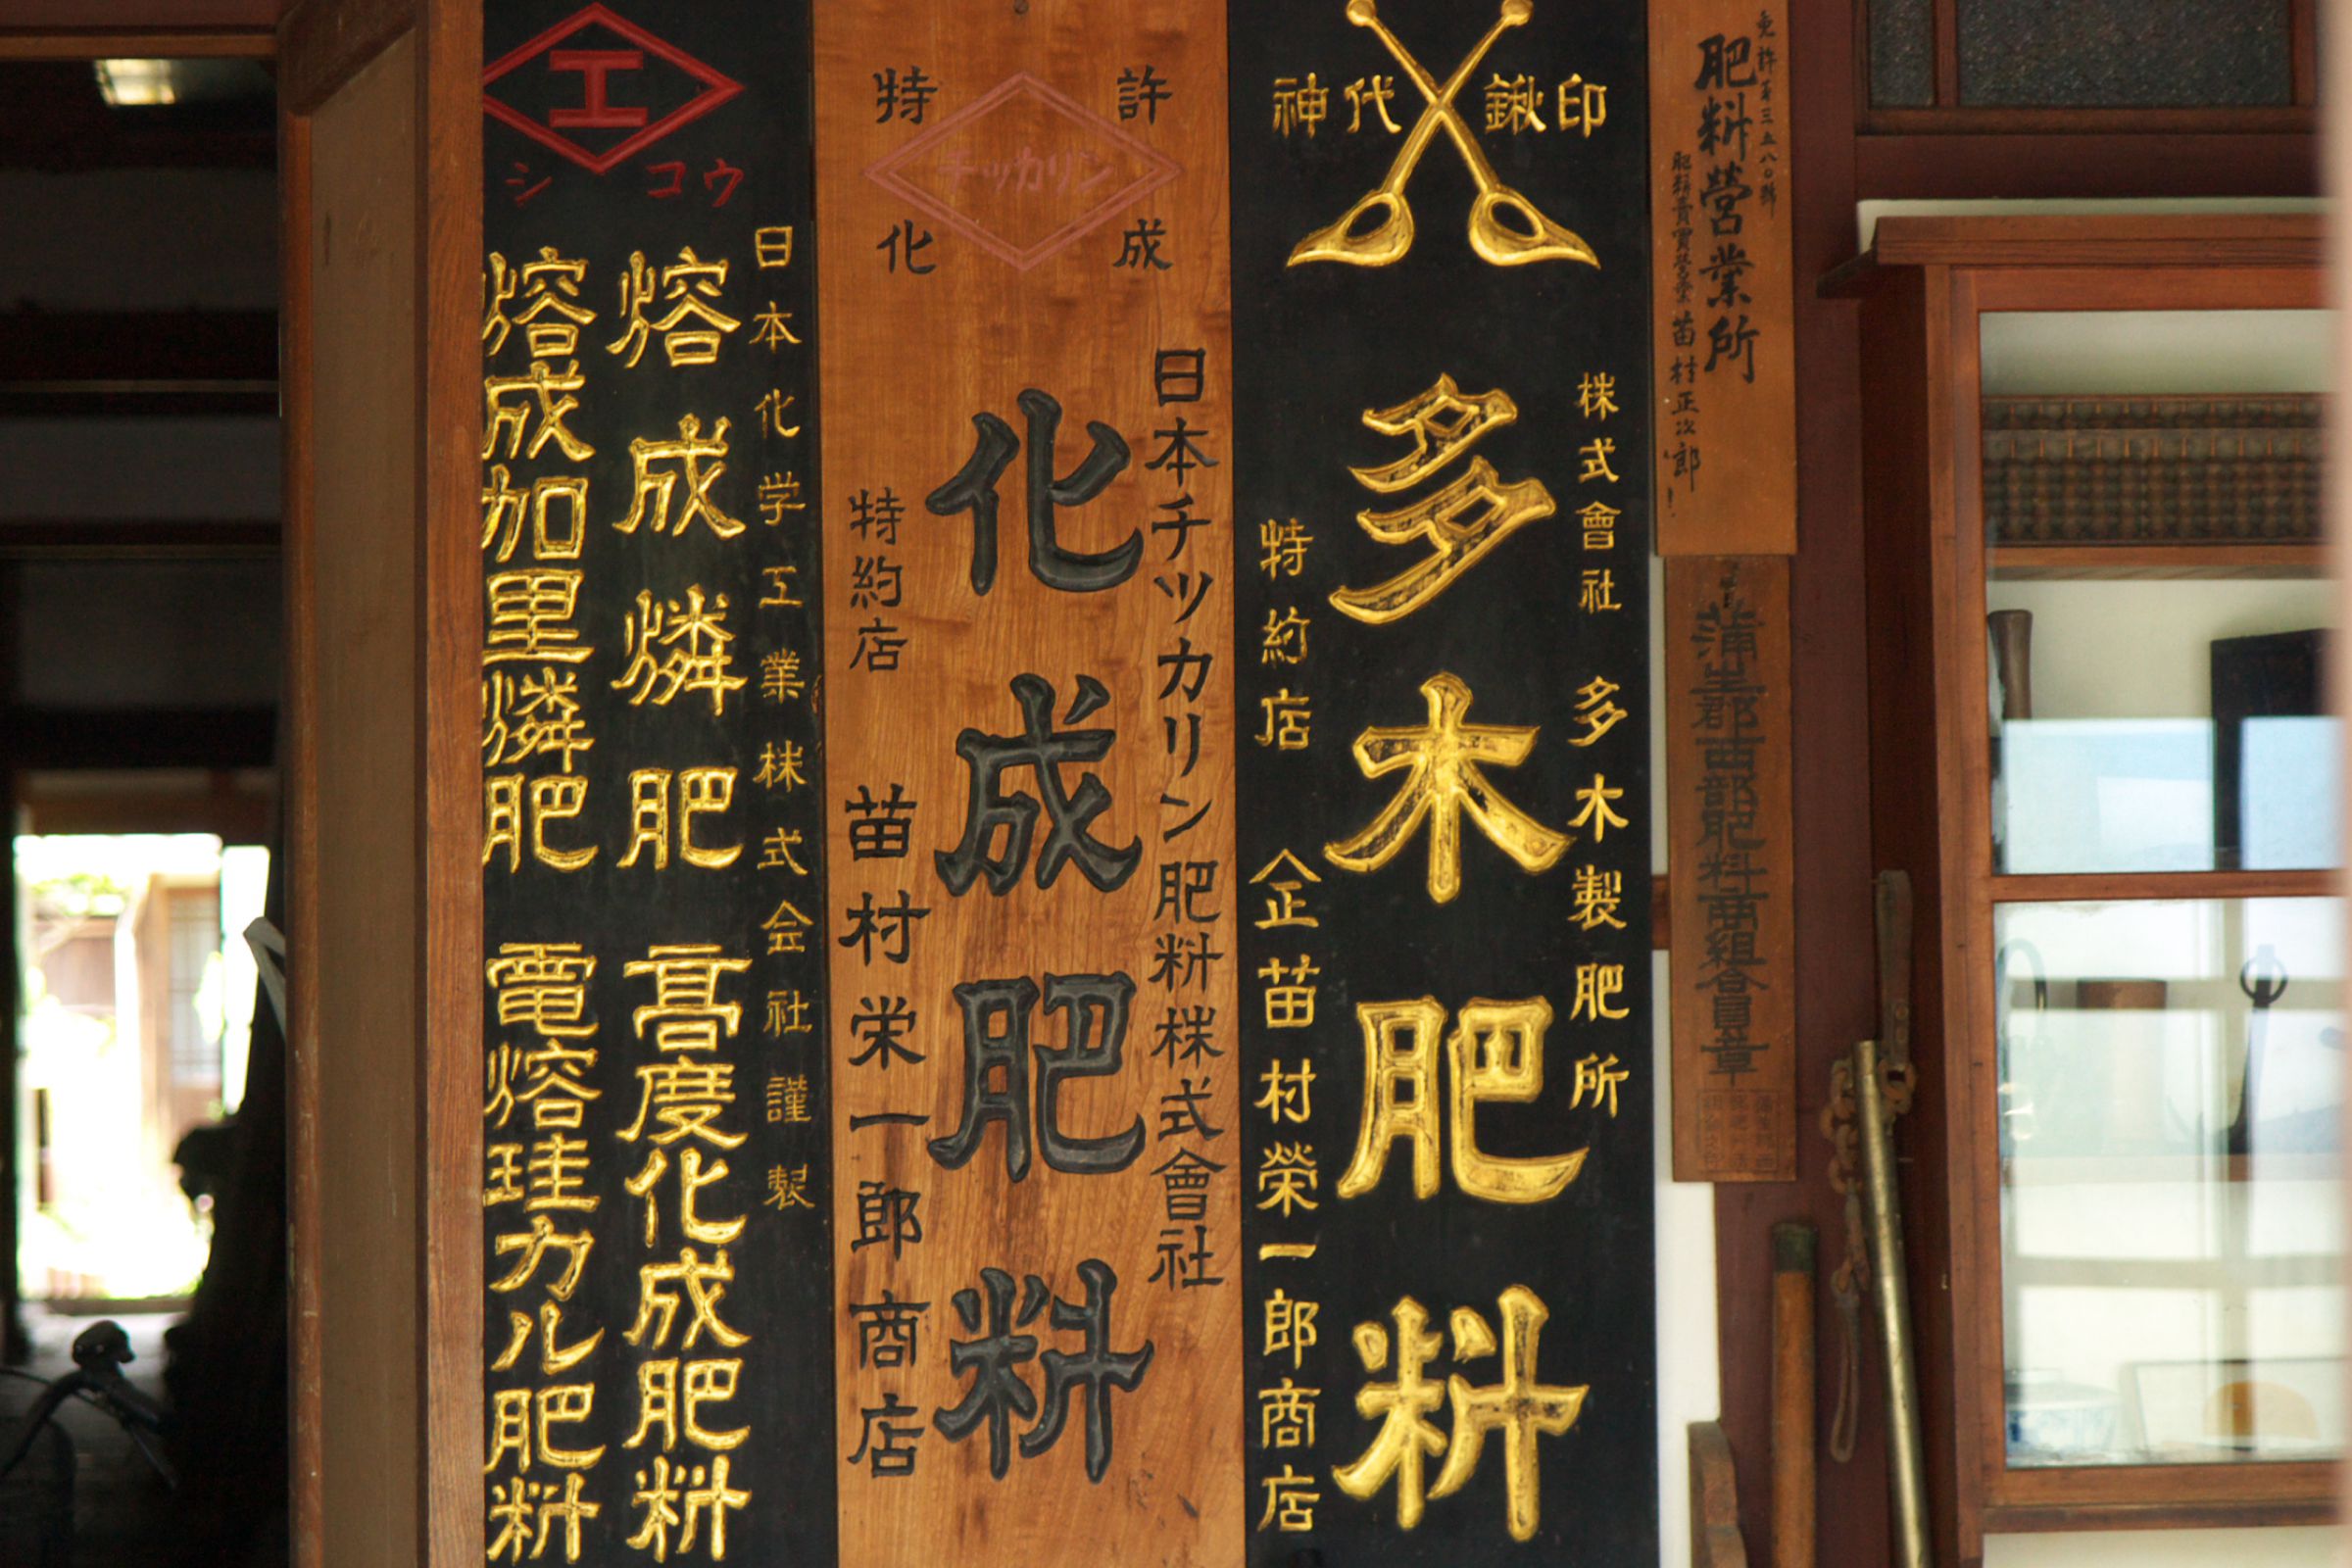 免許第三五八〇號
肥料營業所
肥料賣買營業 苗村正次郎
蒲生郡西部肥料商組合員章
神代鍬印
株式會社 多木製肥所
多木肥料
特約店 企苗村榮一郎商店
特許
チッカリン
化成
日本チツカリン肥料株式會社
化成肥料
特約店 苗村栄一郎商店
エ
シコウ
日本化学工業株式会社謹製
熔成燐肥 高度化成肥料
熔成加里燐肥 電熔珪カル肥料